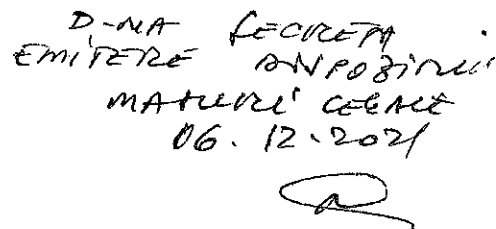 D-NA SECRETAR
EMITERE DISPOZIȚII
MASURI LEGALE
06.12.2021